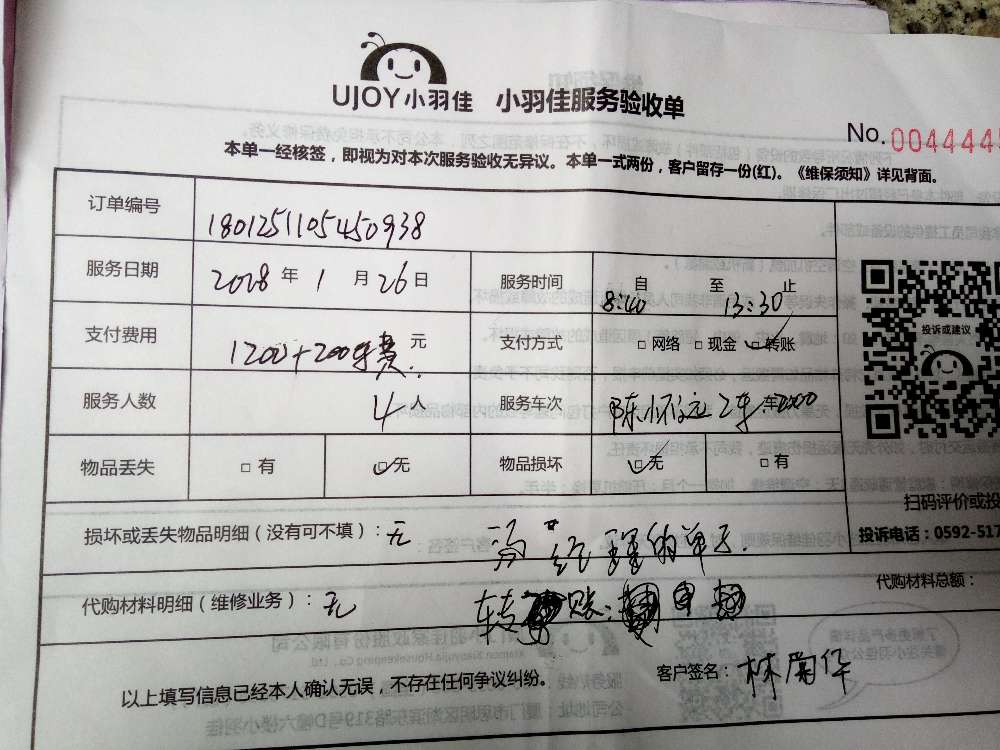 UJOY小羽佳 小羽佳服务验收单
No. 0044444
本单一经核签，即视为对本次服务验收无异议。本单一式两份，客户留存一份(红)。《维保须知》详见背面。
订单编号 180125110545093８
服务日期 2018年1月26日 服务时间 自8:40至13:30止
支付费用 1200+200 元 支付方式 □网络 □现金 ☑转账
服务人数 4人 服务车次 陈怀远2车
物品丢失 □有 ☑无 物品损坏 ☑无 □有
投诉或建议
扫码评价或投
投诉电话：0592-517
损坏或丢失物品明细（没有可不填）：无 冯经理的单子.
代购材料总额：
代购材料明细（维修业务）：无 转账：
以上填写信息已经本人确认无误，不存在任何争议纠纷。 客户签名：林南华